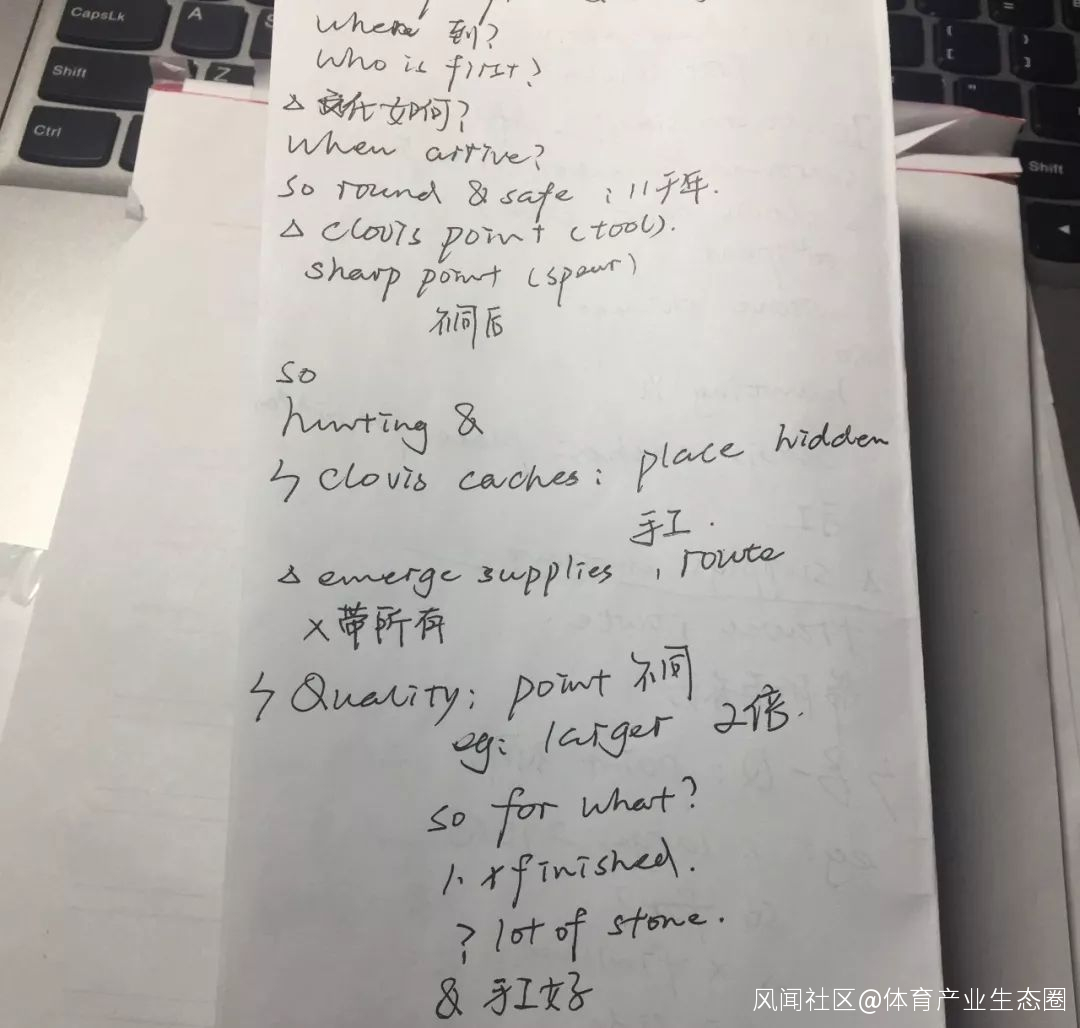 where 到?
Who is first?
△ 如何?
When arrive?
So round & safe ; 11千年.
△ clovis point (tool).
sharp point (spear)
不同后
so
hunting &
↳ Clovis caches: place hidden
手工.
△ emerge supplies , route
×带所有
↳ Quality: point 不同
eg: larger 2倍.
so for what?
1. ×finished.
? lot of stone.
& 手工好
CapsLk
A
Shift
Z
Ctrl
Shift
风闻社区@体育产业生态圈